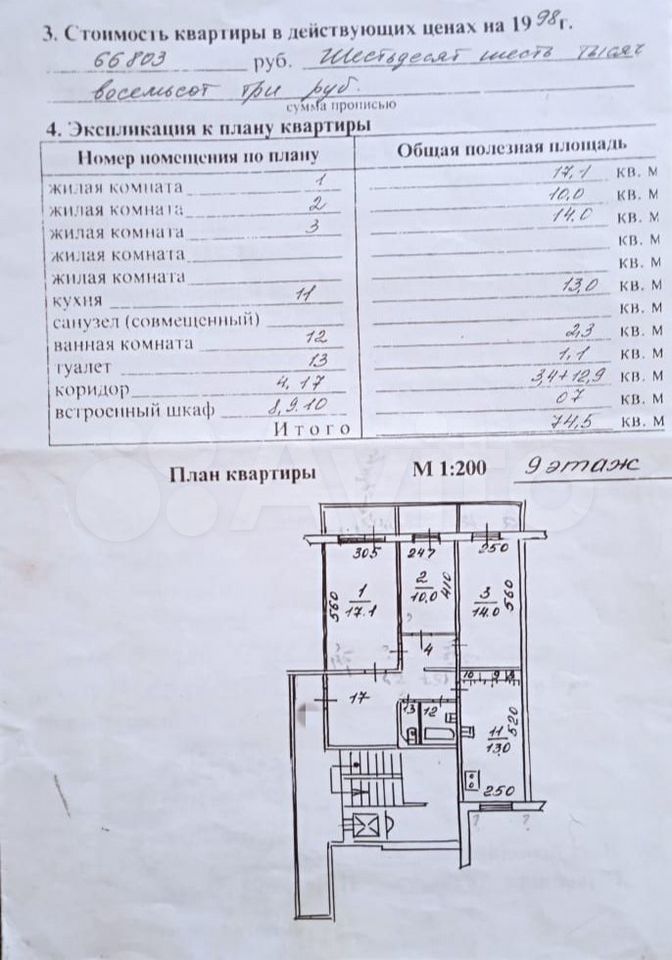 3. Стоимость квартиры в действующих ценах на 1998 г.
66803 руб. Шестьдесят шесть тысяч
восемьсот три руб.
сумма прописью
4. Экспликация к плану квартиры
Номер помещения по плану Общая полезная площадь
жилая комната 1 17,1 кв. м
жилая комната 2 10,0 кв. м
жилая комната 3 14.0 кв. м
жилая комната кв. м
жилая комната кв. м
кухня 11 13,0 кв. м
санузел (совмещенный) кв. м
ванная комната 12 2,3 кв. м
туалет 13 1,1 кв. м
коридор 4, 17 3,4+12,9 кв. м
встроенный шкаф 8, 9. 10 07 кв. м
Итого 74,5 кв. м
План квартиры М 1:200 9 этаж
Avito
305 247 250
560 1 17.1 2 10,0 410 3 14.0 560
4
10 9 8
17 13 12 11 13.0 520
250
? ?